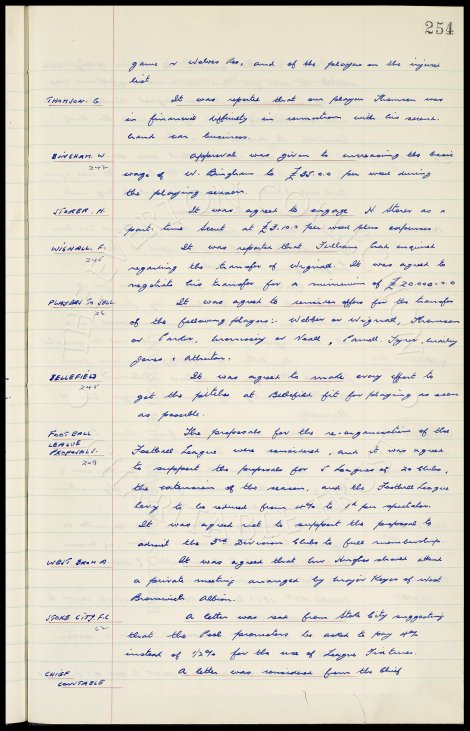 254
game v Wolves Res, and of the players on the injured
list.
THOMSON. G. It was reported that our player Thomson was
in financial difficulty in connection with his second
hand car business.
BINGHAM. W Approval was given to increasing the basic
242 wage of W. Bingham to £35.0.0 per week during
the playing season.
STORER. H. It was agreed to engage H Storer as a
part-time Scout at £3.10.0 per week plus expenses.
WIGNALL. F. It was reported that Fulham had enquired
245 regarding the transfer of Wignall. It was agreed to
negotiate his transfer for a minimum of £20.000.0.0
PLAYERS TO SELL It was agreed to consider offers for the transfer
26 of the following players:- Webber or Wignall, Thomson
or Parker, or Veall, Tyrer,
Jones + Ashurton.
BELLEFIELD It was agreed to make every effort to
245 get the pitches at Bellefield fit for playing as soon
as possible.
FOOTBALL The proposals for the re-organisation of the
LEAGUE Football League were considered, and it was agreed
PROPOSALS. to support the proposals for 5 Leagues of 20 Clubs,
209 the extension of the season, and the Football League
Levy to be reduced from 4% to 1d per spectator.
It was agreed not to support the proposal to
admit the 3rd Division Clubs to full membership
WEST BROM A It was agreed that Mr Hughes should attend
a private meeting arranged by Major Keyes of West
Bromwich Albion.
STOKE CITY. F.C A letter was read from Stoke City suggesting
62 that the Pool promoters be asked to pay 4%
instead of 1/2% for the use of League Fixtures.
CHIEF A letter was considered from the Chief
CONSTABLE